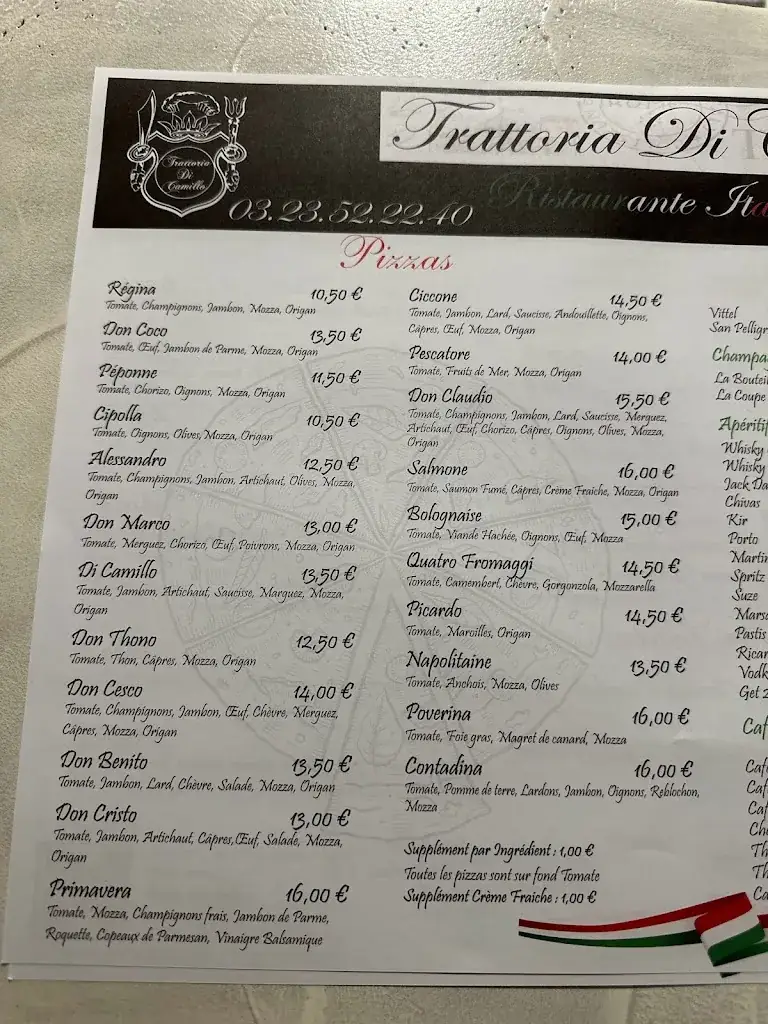 Trattoria Di
Trattoria
Di
Camillo
03.23.52.22.40
Ristaurante Ita
Pizzas
Régina 10,50 €
Tomate, Champignons, Jambon, Mozza, Origan
Don Coco 13,50 €
Tomate, Œuf, Jambon de Parme, Mozza, Origan
Péponne 11,50 €
Tomate, Chorizo, Oignons, Mozza, Origan
Cipolla 10,50 €
Tomate, Oignons, Olives, Mozza, Origan
Alessandro 12,50 €
Tomate, Champignons, Jambon, Artichaut, Olives, Mozza,
Origan
Don Marco 13,00 €
Tomate, Merguez, Chorizo, Œuf, Poivrons, Mozza, Origan
Di Camillo 13,50 €
Tomate, Jambon, Artichaut, Saucisse, Marguez, Mozza,
Origan
Don Thono 12,50 €
Tomate, Thon, Câpres, Mozza, Origan
Don Cesco 14,00 €
Tomate, Champignons, Jambon, Œuf, Chèvre, Merguez,
Câpres, Mozza, Origan
Don Benito 13,50 €
Tomate, Jambon, Lard, Chèvre, Salade, Mozza, Origan
Don Cristo 13,00 €
Tomate, Jambon, Artichaut, Câpres,Œuf, Salade, Mozza,
Origan
Primavera 16,00 €
Tomate, Mozza, Champignons frais, Jambon de Parme,
Roquette, Copeaux de Parmesan, Vinaigre Balsamique
Ciccone 14,50 €
Tomate, Jambon, Lard, Saucisse, Andouillette, Oignons,
Câpres, Œuf, Mozza, Origan
Pescatore 14,00 €
Tomate, Fruits de Mer, Mozza, Origan
Don Claudio 15,50 €
Tomate, Champignons, Jambon, Lard, Saucisse, Merguez,
Artichaut, Œuf, Chorizo, Câpres, Oignons, Olives, Mozza,
Origan
Salmone 16,00 €
Tomate, Saumon Fumé, Câpres, Crème Fraiche, Mozza, Origan
Bolognaise 15,00 €
Tomate, Viande Hachée, Oignons, Œuf, Mozza
Quatro Fromaggi 14,50 €
Tomate, Camembert, Chèvre, Gorgonzola, Mozzarella
Picardo 14,50 €
Tomate, Maroilles, Origan
Napolitaine 13,50 €
Tomate, Anchois, Mozza, Olives
Poverina 16,00 €
Tomate, Foie gras, Magret de canard, Mozza
Contadina 16,00 €
Tomate, Pomme de terre, Lardons, Jambon, Oignons, Reblochon,
Mozza
Supplément par Ingrédient : 1,00 €
Toutes les pizzas sont sur fond Tomate
Supplément Crème Fraiche : 1,00 €
Vittel
San Pelligr
Champag
La Bouteil
La Coupe
Apéritif
Whisky
Whisky
Jack Da
Chivas
Kir
Porto
Martin
Spritz
Suze
Marsa
Pastis
Ricar
Vodk
Get 2
Caf
Café
Caf
Caf
Cho
Th
Th
Ca